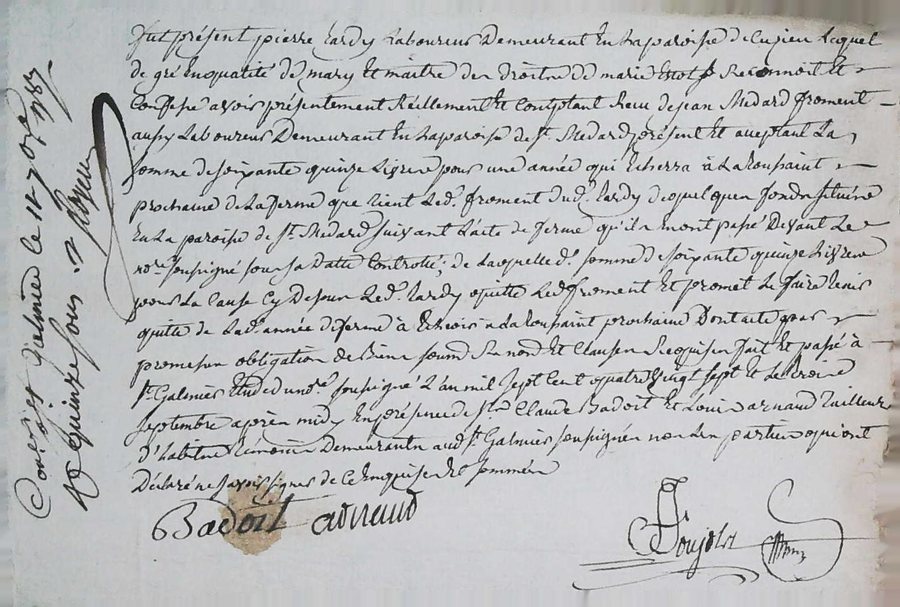 fut présent pierre tardy Laboureur Demeurant En La paroisse de Cuzieu Lequel
de gré En qualité de mary Et maitre des droitz de marie Reconnoit Et
Confesse avoir présentement Réellement Et Comptant Reçu de jean Medard froment
aussy Laboureur Demeurant En La paroisse de St. Medard présent Et acceptant La
somme de soixante quinze Livres pour une année qui Echerra à La toussaint
prochaine de La ferme que tient Led. froment dud. tardy de quelques fonds situés
En La paroisse de St. Medard suivant L'acte de ferme qu'il's m'ont passé Devant Le
no.re soussigné sous sa Datte Controllé; de Laquelle d. somme de soixante quinze Livres
pour La Cause Cy Dessus Led. tardy quitte Led. froment Et promet Le faire tenir
quitte de Lad. année de ferme à Echoir à La toussaint prochaine Dont acte par
promesses obligation de Biens soumd. Renond. Et Clauses Requises fait Et passé à
St. Galmier Etude du no.re soussigné L'an mil sept Cent quatre vingt sept Et Le treize
septembre après midy En présence de sr. Claude Badoit Et Louis arnaud tailleur
d'habits témoins Demeurants aud. St. Galmier soussignés non Les parties qui ont
Déclaré ne savoir signer de Ce Enquises Et sommées
Badoit arnaud
Conlé à St. Galmier le 1787
Rç quinze sous